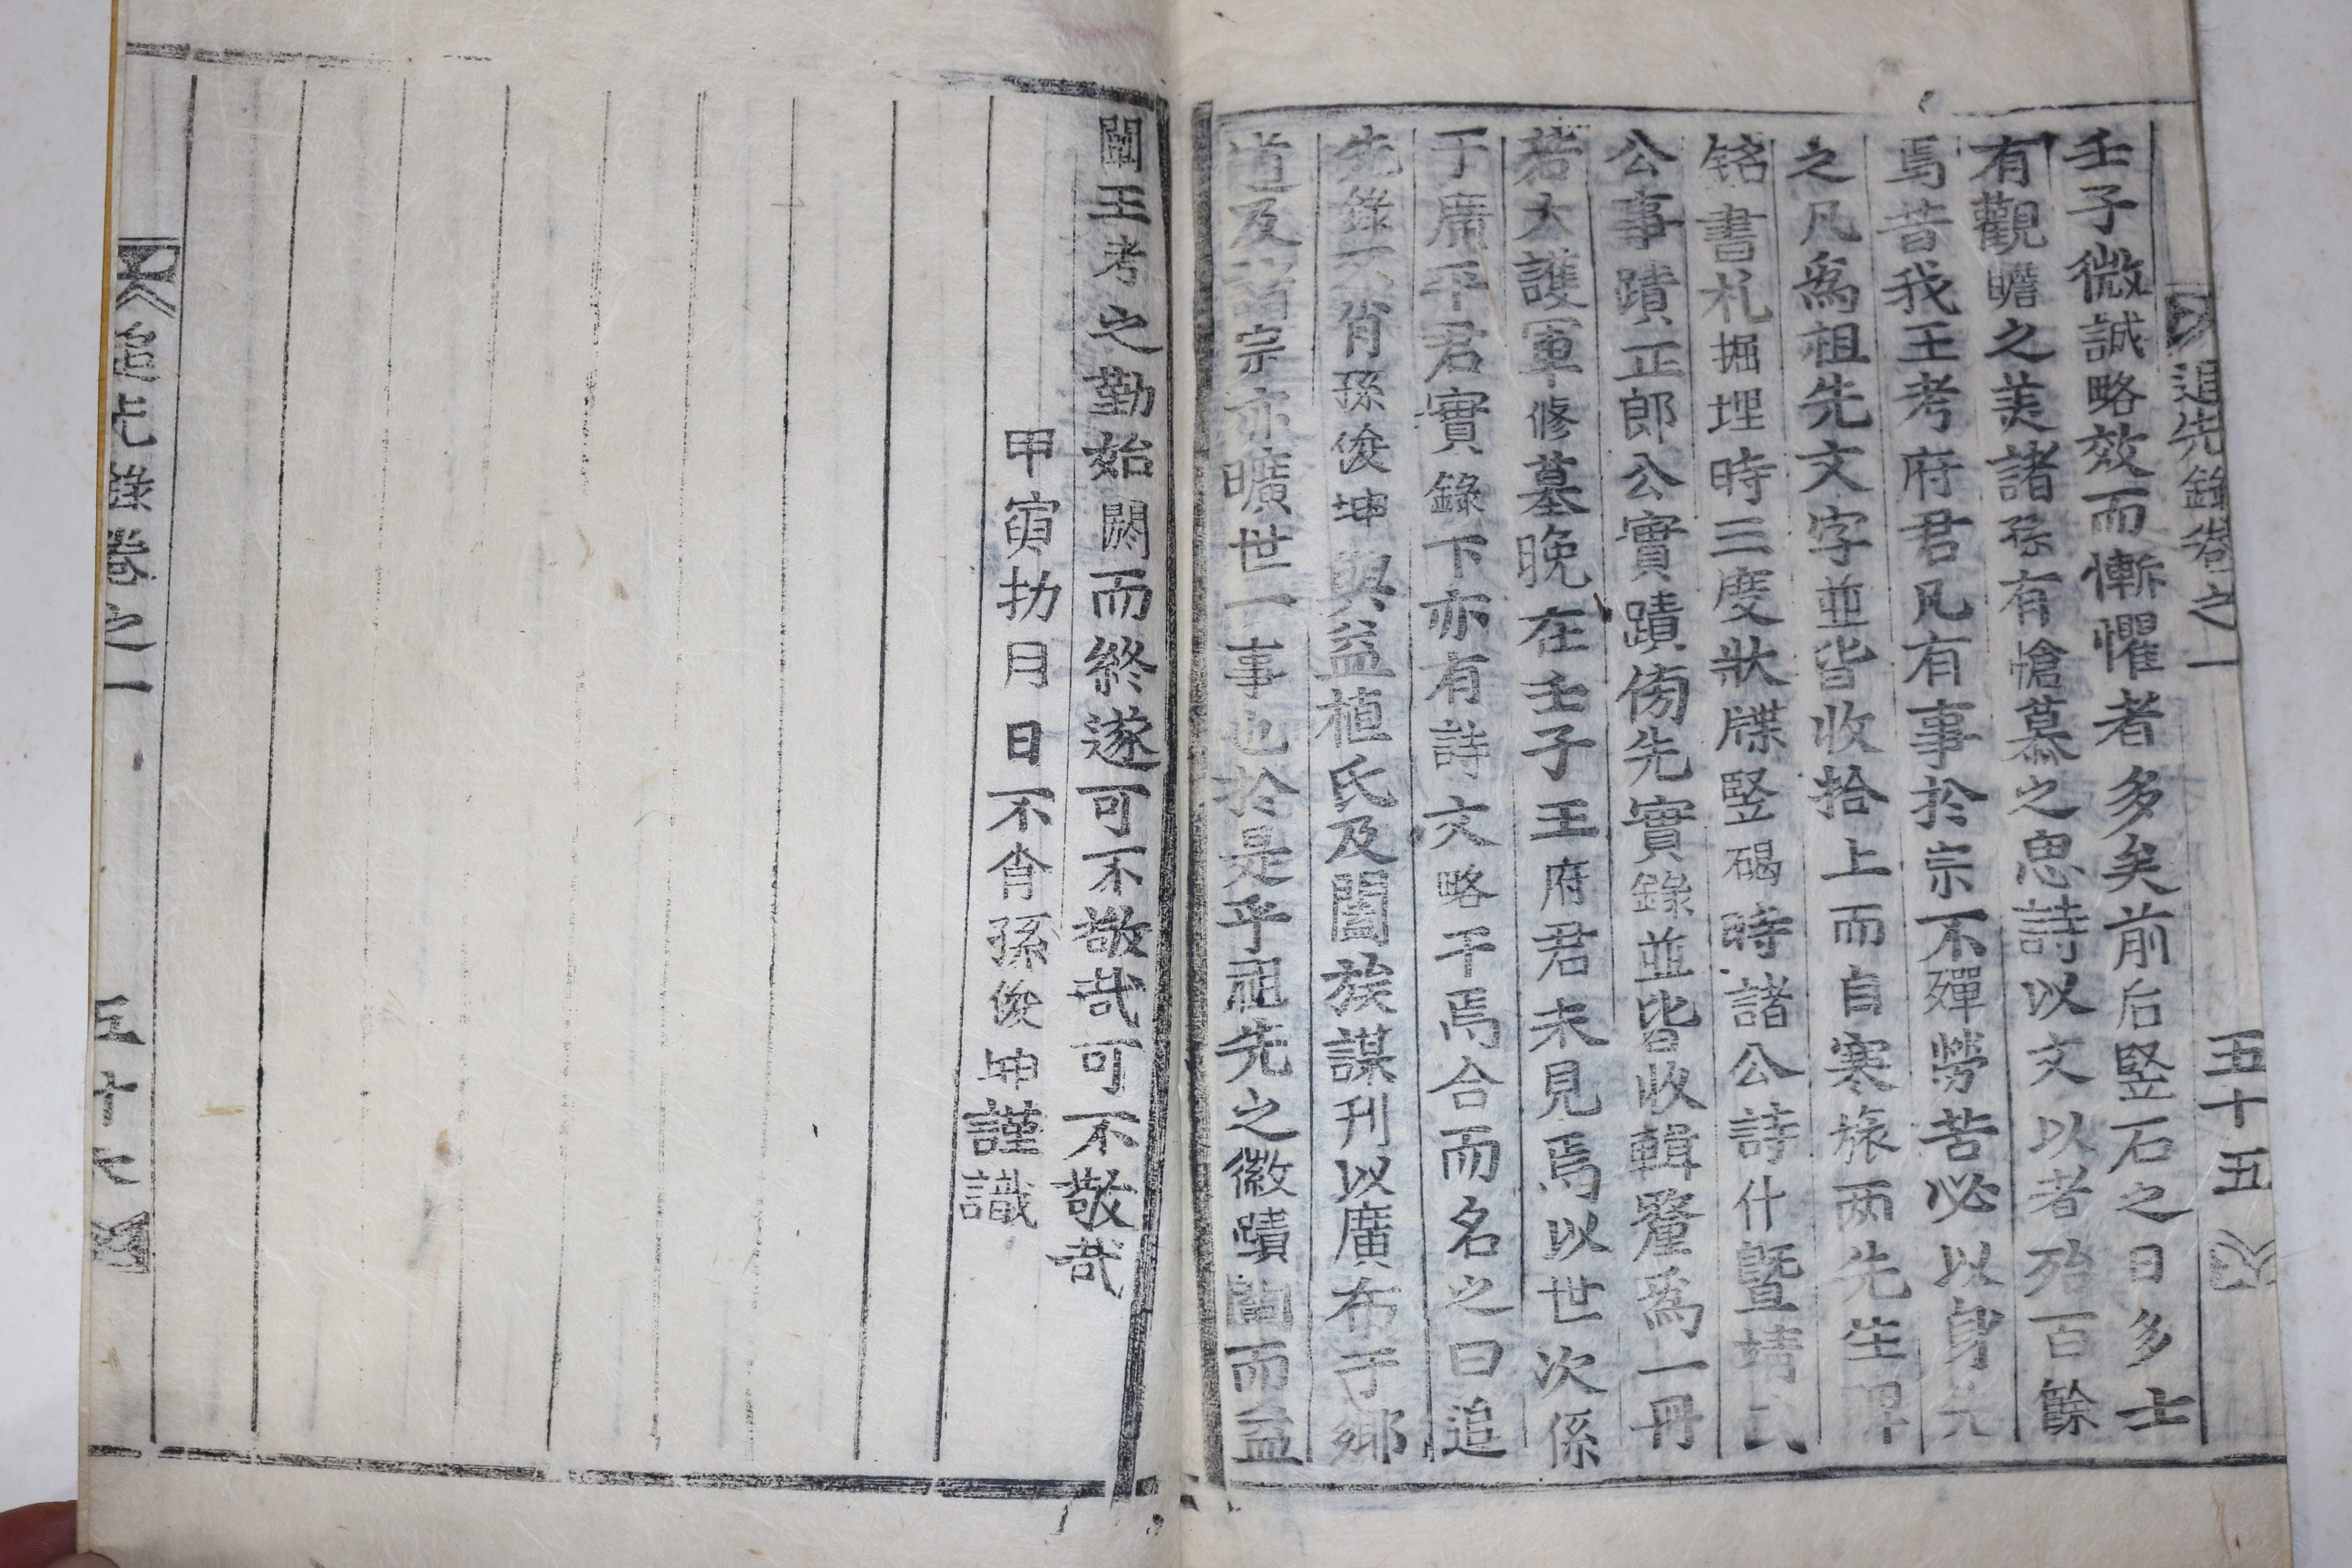 追先錄卷之一 五十五
壬子微誠略效而慚懼者多矣前后竪石之日多士
有觀瞻之美諸孫有愴慕之思詩以文以者殆百餘
焉昔我王考府君凡有事於宗不殫勞苦必以身先
之凡爲祖先文字並皆收拾上而自寒旅两先生碑
銘書札掘埋時三度狀牒竪碣時諸公詩什暨靖
公事蹟正郎公實蹟傍先實錄並皆收輯釐爲一冊
若大護軍修墓晩在壬子王府君未見焉以世次係
于廣平君實錄下亦有詩文略干焉合而名之曰追
先錄不肖孫俊坤與益植氏及闔族謀刊以廣布于鄉
道及諸宗亦曠世一事也於是乎祖先之徽蹟闡而益
闡王考之勤始閼而終遂可不敬哉可不敬哉
甲寅扐月日不肖孫俊坤謹識
追先錄卷之一 五十七